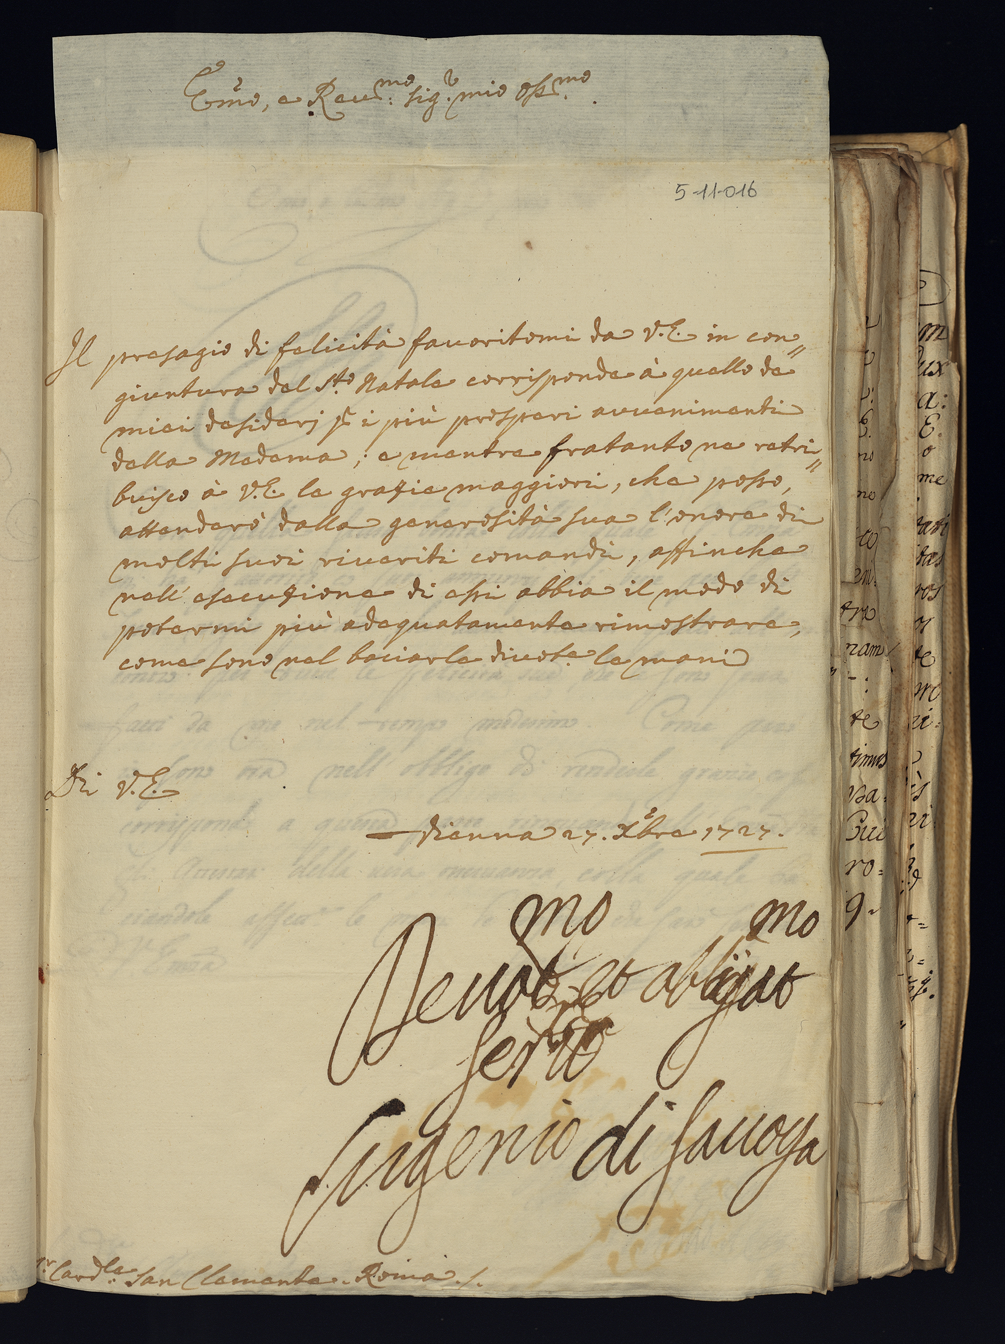 Em.o, e Reu.mo Sig.r mio oss.mo
5-11-016
Il presagio di felicità fauoritomi da V.E. in con„
giuntura del S.to Natale corrisponde à quello de
miei desiderj p i più prosperi auuenimenti
della Medema; e mentre fratanto ne retri„
buisco à V.E. le grazie maggiori, che posso,
attenderò dalla generosità sua l'onore di
molti suoi riueriti comandi, affinche
nell'esecuzione di essi abbia il modo di
potermi più adeguatamente rimostrare,
come sono nel baciarle diuot.e le mani
Di V.E.
Vienna 27. Xbre 1727.
Deuot.mo et obligat.mo
Ser.re
Eugenio di Sauoya
Card.le San Clemente. Roma